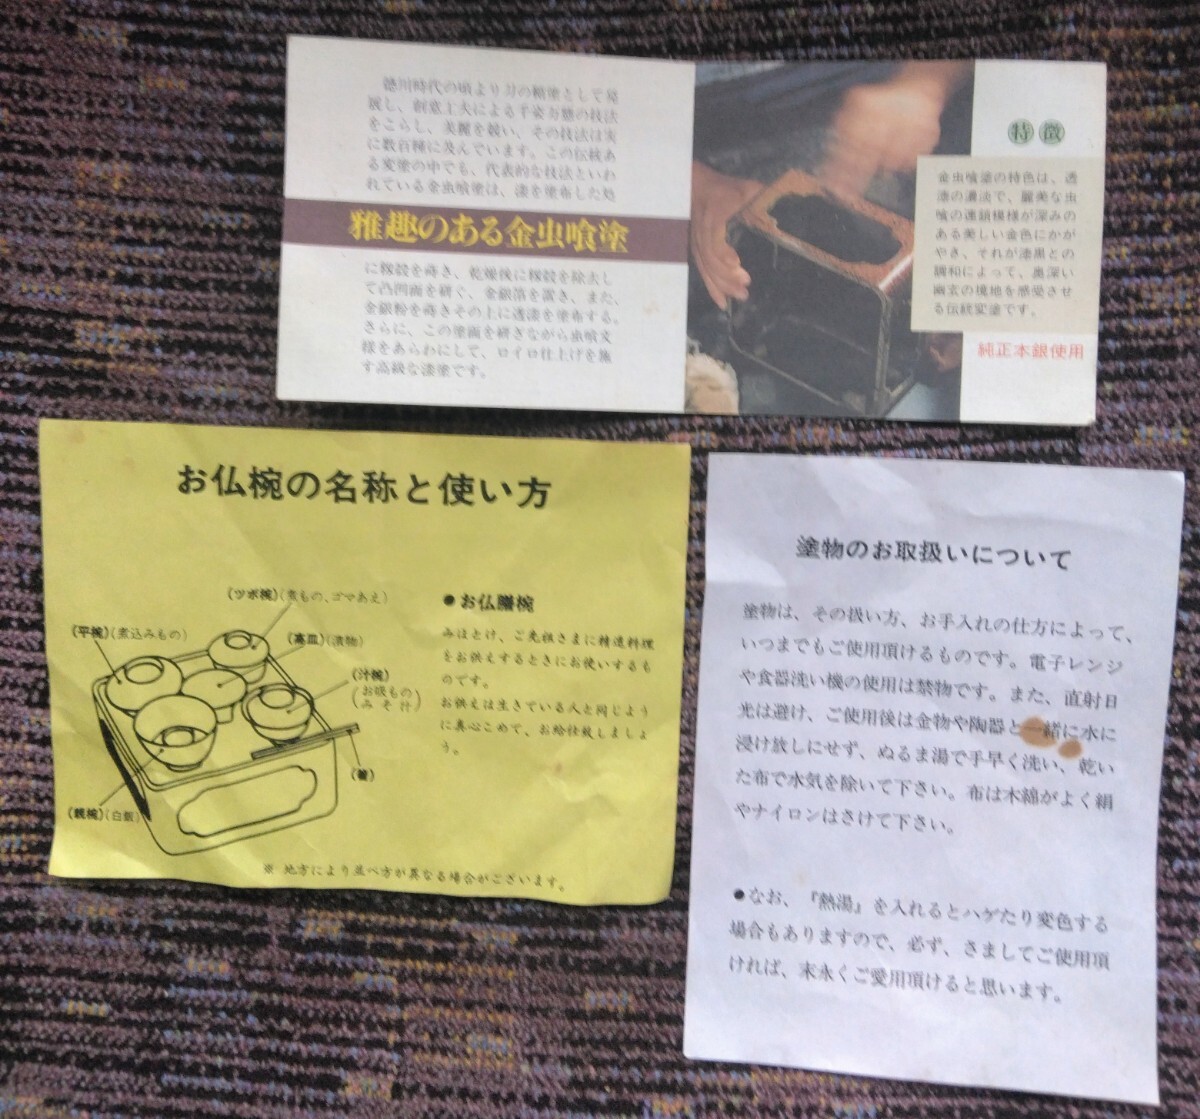 徳川時代の頃より刀の鞘塗として発
展し、創意工夫による千姿万態の技法
をこらし、美麗を競い、その技法は実
に数百種に及んでいます。この伝統あ
る変塗の中でも、代表的な技法といわ
れている金虫喰塗は、漆を塗布した処
雅趣のある金虫喰塗
に籾殻を蒔き、乾燥後に籾殻を除去し
て凸凹面を研ぐ、金銀箔を置き、また、
金銀粉を蒔きその上に透漆を塗布する。
さらに、この塗面を研ぎながら虫喰文
様をあらわにして、ロイロ仕上げを施
す高級な漆塗です。
特徴
金虫喰塗の特色は、透
漆の濃淡で、麗美な虫
喰の連鎖模様が深みの
ある美しい金色にかが
やき、それが漆黒との
調和によって、奥深い
幽玄の境地を感受させ
る伝統変塗です。
純正本銀使用
お仏椀の名称と使い方
(ツボ椀)(煮もの、ゴマあえ)
(平椀)(煮込みもの)
(高皿)(漬物)
(汁椀)
(お吸もの
みそ汁)
(箸)
(親椀)(白飯)
●お仏膳椀
みほとけ、ご先祖さまに精進料理
をお供えするときにお使いするも
のです。
お供えは生きている人と同じよう
に真心こめて、お給仕致しましょ
う。
※ 地方により並べ方が異なる場合がございます。
塗物のお取扱いについて
塗物は、その扱い方、お手入れの仕方によって、
いつまでもご使用頂けるものです。電子レンジ
や食器洗い機の使用は禁物です。また、直射日
光は避け、ご使用後は金物や陶器と一緒に水に
浸け放しにせず、ぬるま湯で手早く洗い、乾い
た布で水気を除いて下さい。布は木綿がよく絹
やナイロンはさけて下さい。
●なお、『熱湯』を入れるとハゲたり変色する
場合もありますので、必ず、さましてご使用頂
ければ、末永くご愛用頂けると思います。